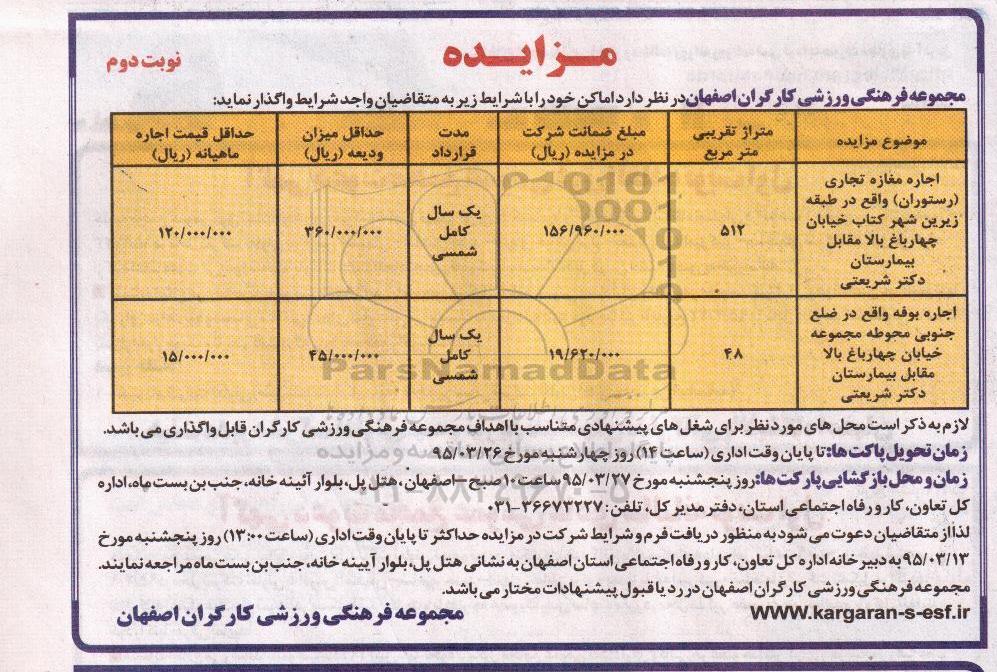 مزایده
نوبت دوم
مجموعه فرهنگی ورزشی کارگران اصفهان در نظر دارد اماکن خود را با شرایط زیر به متقاضیان واجد شرایط واگذار نماید:
موضوع مزایده
متراژ تقریبی
متر مربع
مبلغ ضمانت شرکت
در مزایده (ریال)
مدت
قرارداد
حداقل میزان
ودیعه (ریال)
حداقل قیمت اجاره
ماهیانه (ریال)
اجاره مغازه تجاری
(رستوران) واقع در طبقه
زیرین شهر کتاب خیابان
چهارباغ بالا مقابل
بیمارستان
دکتر شریعتی
۵۱۲
۱۵۶/۹۶۰/۰۰۰
یک سال
کامل
شمسی
۳۶۰/۰۰۰/۰۰۰
۱۲۰/۰۰۰/۰۰۰
اجاره بوفه واقع در ضلع
جنوبی محوطه مجموعه
خیابان چهارباغ بالا
مقابل بیمارستان
دکتر شریعتی
۴۸
۱۹/۶۲۰/۰۰۰
یک سال
کامل
شمسی
۴۵/۰۰۰/۰۰۰
۱۵/۰۰۰/۰۰۰
ParsNamadData
لازم به ذکر است محل های مورد نظر برای شغل های پیشنهادی متناسب با اهداف مجموعه فرهنگی ورزشی کارگران قابل واگذاری می باشد.
زمان تحویل پاکت ها: تا پایان وقت اداری (ساعت ۱۴) روز چهارشنبه مورخ ۹۵/۰۳/۲۶
زمان و محل بازگشایی پارکت ها: روز پنجشنبه مورخ ۹۵/۰۳/۲۷ ساعت ۱۰ صبح - اصفهان، هتل پل، بلوار آئینه خانه، جنب بن بست ماه، اداره
کل تعاون، کار و رفاه اجتماعی استان، دفتر مدیر کل، تلفن: ۳۶۶۷۳۲۲۷-۰۳۱
لذا از متقاضیان دعوت می شود به منظور دریافت فرم و شرایط شرکت در مزایده حداکثر تا پایان وقت اداری (ساعت ۱۳:۰۰) روز پنجشنبه مورخ
۹۵/۰۳/۱۳ به دبیرخانه اداره کل تعاون، کار و رفاه اجتماعی استان اصفهان به نشانی هتل پل، بلوار آیینه خانه، جنب بن بست ماه مراجعه نمایند.
مجموعه فرهنگی ورزشی کارگران اصفهان در رد یا قبول پیشنهادات مختار می باشد.
WWW.kargaran-s-esf.ir
مجموعه فرهنگی ورزشی کارگران اصفهان